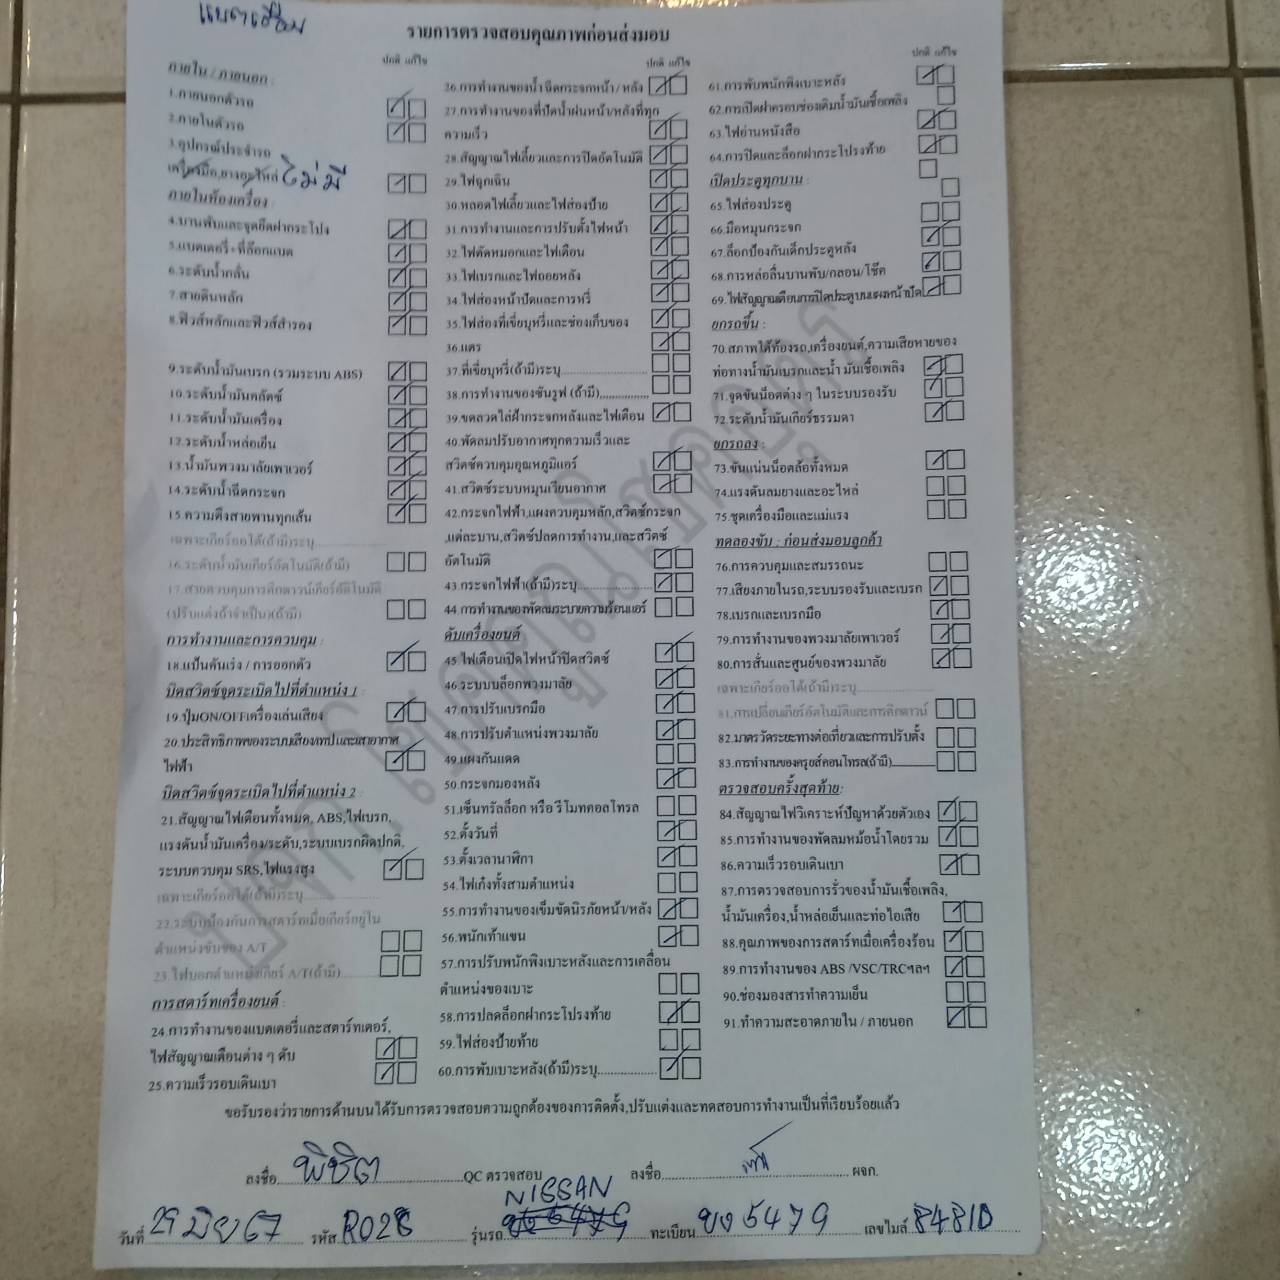 รายการตรวจสอบคุณภาพก่อนส่งมอบ
ปกติ แก้ไข
ภายใน / ภายนอก :
1.ภายนอกตัวรถ
2.ภายในตัวรถ
3.อุปกรณ์ประจำรถ
เครื่องมือ,ยางอะไหล่ ไม่มี
ภายในห้องเครื่อง :
4.บานพับและจุดยึดฝากระโปรง
5.แบตเตอรี่+ที่ล็อกแบต
6.ระดับน้ำกลั่น
7.สายดินหลัก
8.ฟิวส์หลักและฟิวส์สำรอง
9.ระดับน้ำมันเบรก (รวมระบบ ABS)
10.ระดับน้ำมันคลัตช์
11.ระดับน้ำมันเครื่อง
12.ระดับน้ำหล่อเย็น
13.น้ำมันพวงมาลัยเพาเวอร์
14.ระดับน้ำฉีดกระจก
15.ความตึงสายพานทุกเส้น
เฉพาะเกียร์ออโต้(ถ้ามี)ระบุ
16.ระดับน้ำมันเกียร์อัตโนมัติ(ถ้ามี)
17.สายควบคุมการคิกดาวน์เกียร์อัตโนมัติ
(ปรับแต่งถ้าจำเป็น)(ถ้ามี)
การทำงานและการควบคุม :
18.แป้นคันเร่ง / การออกตัว
บิดสวิตช์จุดระเบิดไปที่ตำแหน่ง 1 :
19.ปุ่มON/OFFเครื่องเล่นเสียง
20.ประสิทธิภาพของระบบเสียง/เทป และเสาอากาศ
ไฟฟ้า
บิดสวิตช์จุดระเบิดไปที่ตำแหน่ง 2 :
21.สัญญาณไฟเตือนทั้งหมด, ABS,ไฟเบรก,
แรงดันน้ำมันเครื่อง/ระดับ,ระบบเบรกผิดปกติ,
ระบบควบคุม SRS,ไฟแรงสูง
เฉพาะเกียร์ออโต้(ถ้ามี)ระบุ
22.ระบบป้องกันการสตาร์ทเมื่อเกียร์อยู่ใน
ตำแหน่งขับของ A/T
23.ไฟบอกตำแหน่งเกียร์ A/T(ถ้ามี)
การสตาร์ทเครื่องยนต์ :
24.การทำงานของแบตเตอรี่และสตาร์ทเตอร์,
ไฟสัญญาณเตือนต่าง ๆ ดับ
25.ความเร็วรอบเดินเบา
ปกติ แก้ไข
26.การทำงานของน้ำฉีดกระจกหน้า / หลัง
27.การทำงานของที่ปัดน้ำฝนหน้า/หลังที่ทุก
ความเร็ว
28.สัญญาณไฟเลี้ยวและการปิดอัตโนมัติ
29.ไฟฉุกเฉิน
30.หลอดไฟเลี้ยวและไฟส่องป้าย
31.การทำงานและการปรับตั้งไฟหน้า
32.ไฟตัดหมอกและไฟเตือน
33.ไฟเบรกและไฟถอยหลัง
34.ไฟส่องหน้าปัดและการหรี่
35.ไฟส่องที่เขี่ยบุหรี่และช่องเก็บของ
36.แตร
37.ที่เขี่ยบุหรี่(ถ้ามี)ระบุ
38.การทำงานของซันรูฟ (ถ้ามี)
39.ขดลวดไล่ฝ้ากระจกหลังและไฟเตือน
40.พัดลมปรับอากาศทุกความเร็วและ
สวิตช์ควบคุมอุณหภูมิแอร์
41.สวิตช์ระบบหมุนเวียนอากาศ
42.กระจกไฟฟ้า,แผงควบคุมหลัก,สวิตช์กระจก
,แต่ละบาน,สวิตช์ปลดการทำงาน,และสวิตช์
อัตโนมัติ
43.กระจกไฟฟ้า(ถ้ามี)ระบุ
44.การทำงานของพัดลมระบายความร้อนแอร์
ดับเครื่องยนต์
45.ไฟเตือนเปิดไฟหน้าปิดสวิตช์
46.ระบบบล็อกพวงมาลัย
47.การปรับเบรกมือ
48.การปรับตำแหน่งพวงมาลัย
49.แผงกันแดด
50.กระจกมองหลัง
51.เซ็นทรัลล็อก หรือ รีโมทคอลโทรล
52.ตั้งวันที่
53.ตั้งเวลานาฬิกา
54.ไฟเก๋งทั้งสามตำแหน่ง
55.การทำงานของเข็มขัดนิรภัยหน้า/หลัง
56.พนักเท้าแขน
57.การปรับพนักพิงเบาะหลังและการเคลื่อน
ตำแหน่งของเบาะ
58.การปลดล็อกฝากระโปรงท้าย
59.ไฟส่องป้ายท้าย
60.การพับเบาะหลัง(ถ้ามี)ระบุ
ปกติ แก้ไข
61.การพับพนักพิงเบาะหลัง
62.การเปิดฝาครอบช่องเติมน้ำมันเชื้อเพลิง
63.ไฟอ่านหนังสือ
64.การปิดและล็อกฝากระโปรงท้าย
เปิดประตูทุกบาน :
65.ไฟส่องประตู
66.มือหมุนกระจก
67.ล็อกป้องกันเด็กประตูหลัง
68.การหล่อลื่นบานพับ/กลอน/โช๊ค
69.ไฟสัญญาณเตือนการปิดประตูบนแผงหน้าปัด
ยกรถขึ้น :
70.สภาพใต้ท้องรถ,เครื่องยนต์,ความเสียหายของ
ท่อทางน้ำมันเบรกและน้ำ มันเชื้อเพลิง
71.จุดขันน็อตต่าง ๆ ในระบบรองรับ
72.ระดับน้ำมันเกียร์ธรรมดา
ยกรถลง :
73.ขันแน่นน็อตล้อทั้งหมด
74.แรงดันลมยางและอะไหล่
75.ชุดเครื่องมือและแม่แรง
ทดลองขับ : ก่อนส่งมอบลูกค้า
76.การควบคุมและสมรรถนะ
77.เสียงภายในรถ,ระบบรองรับและเบรก
78.เบรกและเบรกมือ
79.การทำงานของพวงมาลัยเพาเวอร์
80.การสั่นและศูนย์ของพวงมาลัย
เฉพาะเกียร์ออโต้(ถ้ามี)ระบุ
81.การเปลี่ยนเกียร์อัตโนมัติและการคิกดาวน์
82.มาตรวัดระยะทางต่อเที่ยวและการปรับตั้ง
83.การทำงานของครูยส์คอนโทรล(ถ้ามี)
ตรวจสอบครั้งสุดท้าย:
84.สัญญาณไฟวิเคราะห์ปัญหาด้วยตัวเอง
85.การทำงานของพัดลมหม้อน้ำโดยรวม
86.ความเร็วรอบเดินเบา
87.การตรวจสอบการรั่วของน้ำมันเชื้อเพลิง,
น้ำมันเครื่อง,น้ำหล่อเย็นและท่อไอเสีย
88.คุณภาพของการสตาร์ทเมื่อเครื่องร้อน
89.การทำงานของ ABS /VSC/TRCฯลฯ
90.ช่องมองสารทำความเย็น
91.ทำความสะอาดภายใน / ภายนอก
ขอรับรองว่ารายการด้านบนได้รับการตรวจสอบความถูกต้องของการติดตั้ง,ปรับแต่งและทดสอบการทำงานเป็นที่เรียบร้อยแล้ว
ลงชื่อ พิชิต QC ตรวจสอบ ลงชื่อ ผจก.
NISSAN
วันที่ 29 มิย 67 รหัส R028 รุ่นรถ ทะเบียน บง 5479 เลขไมล์ 84810